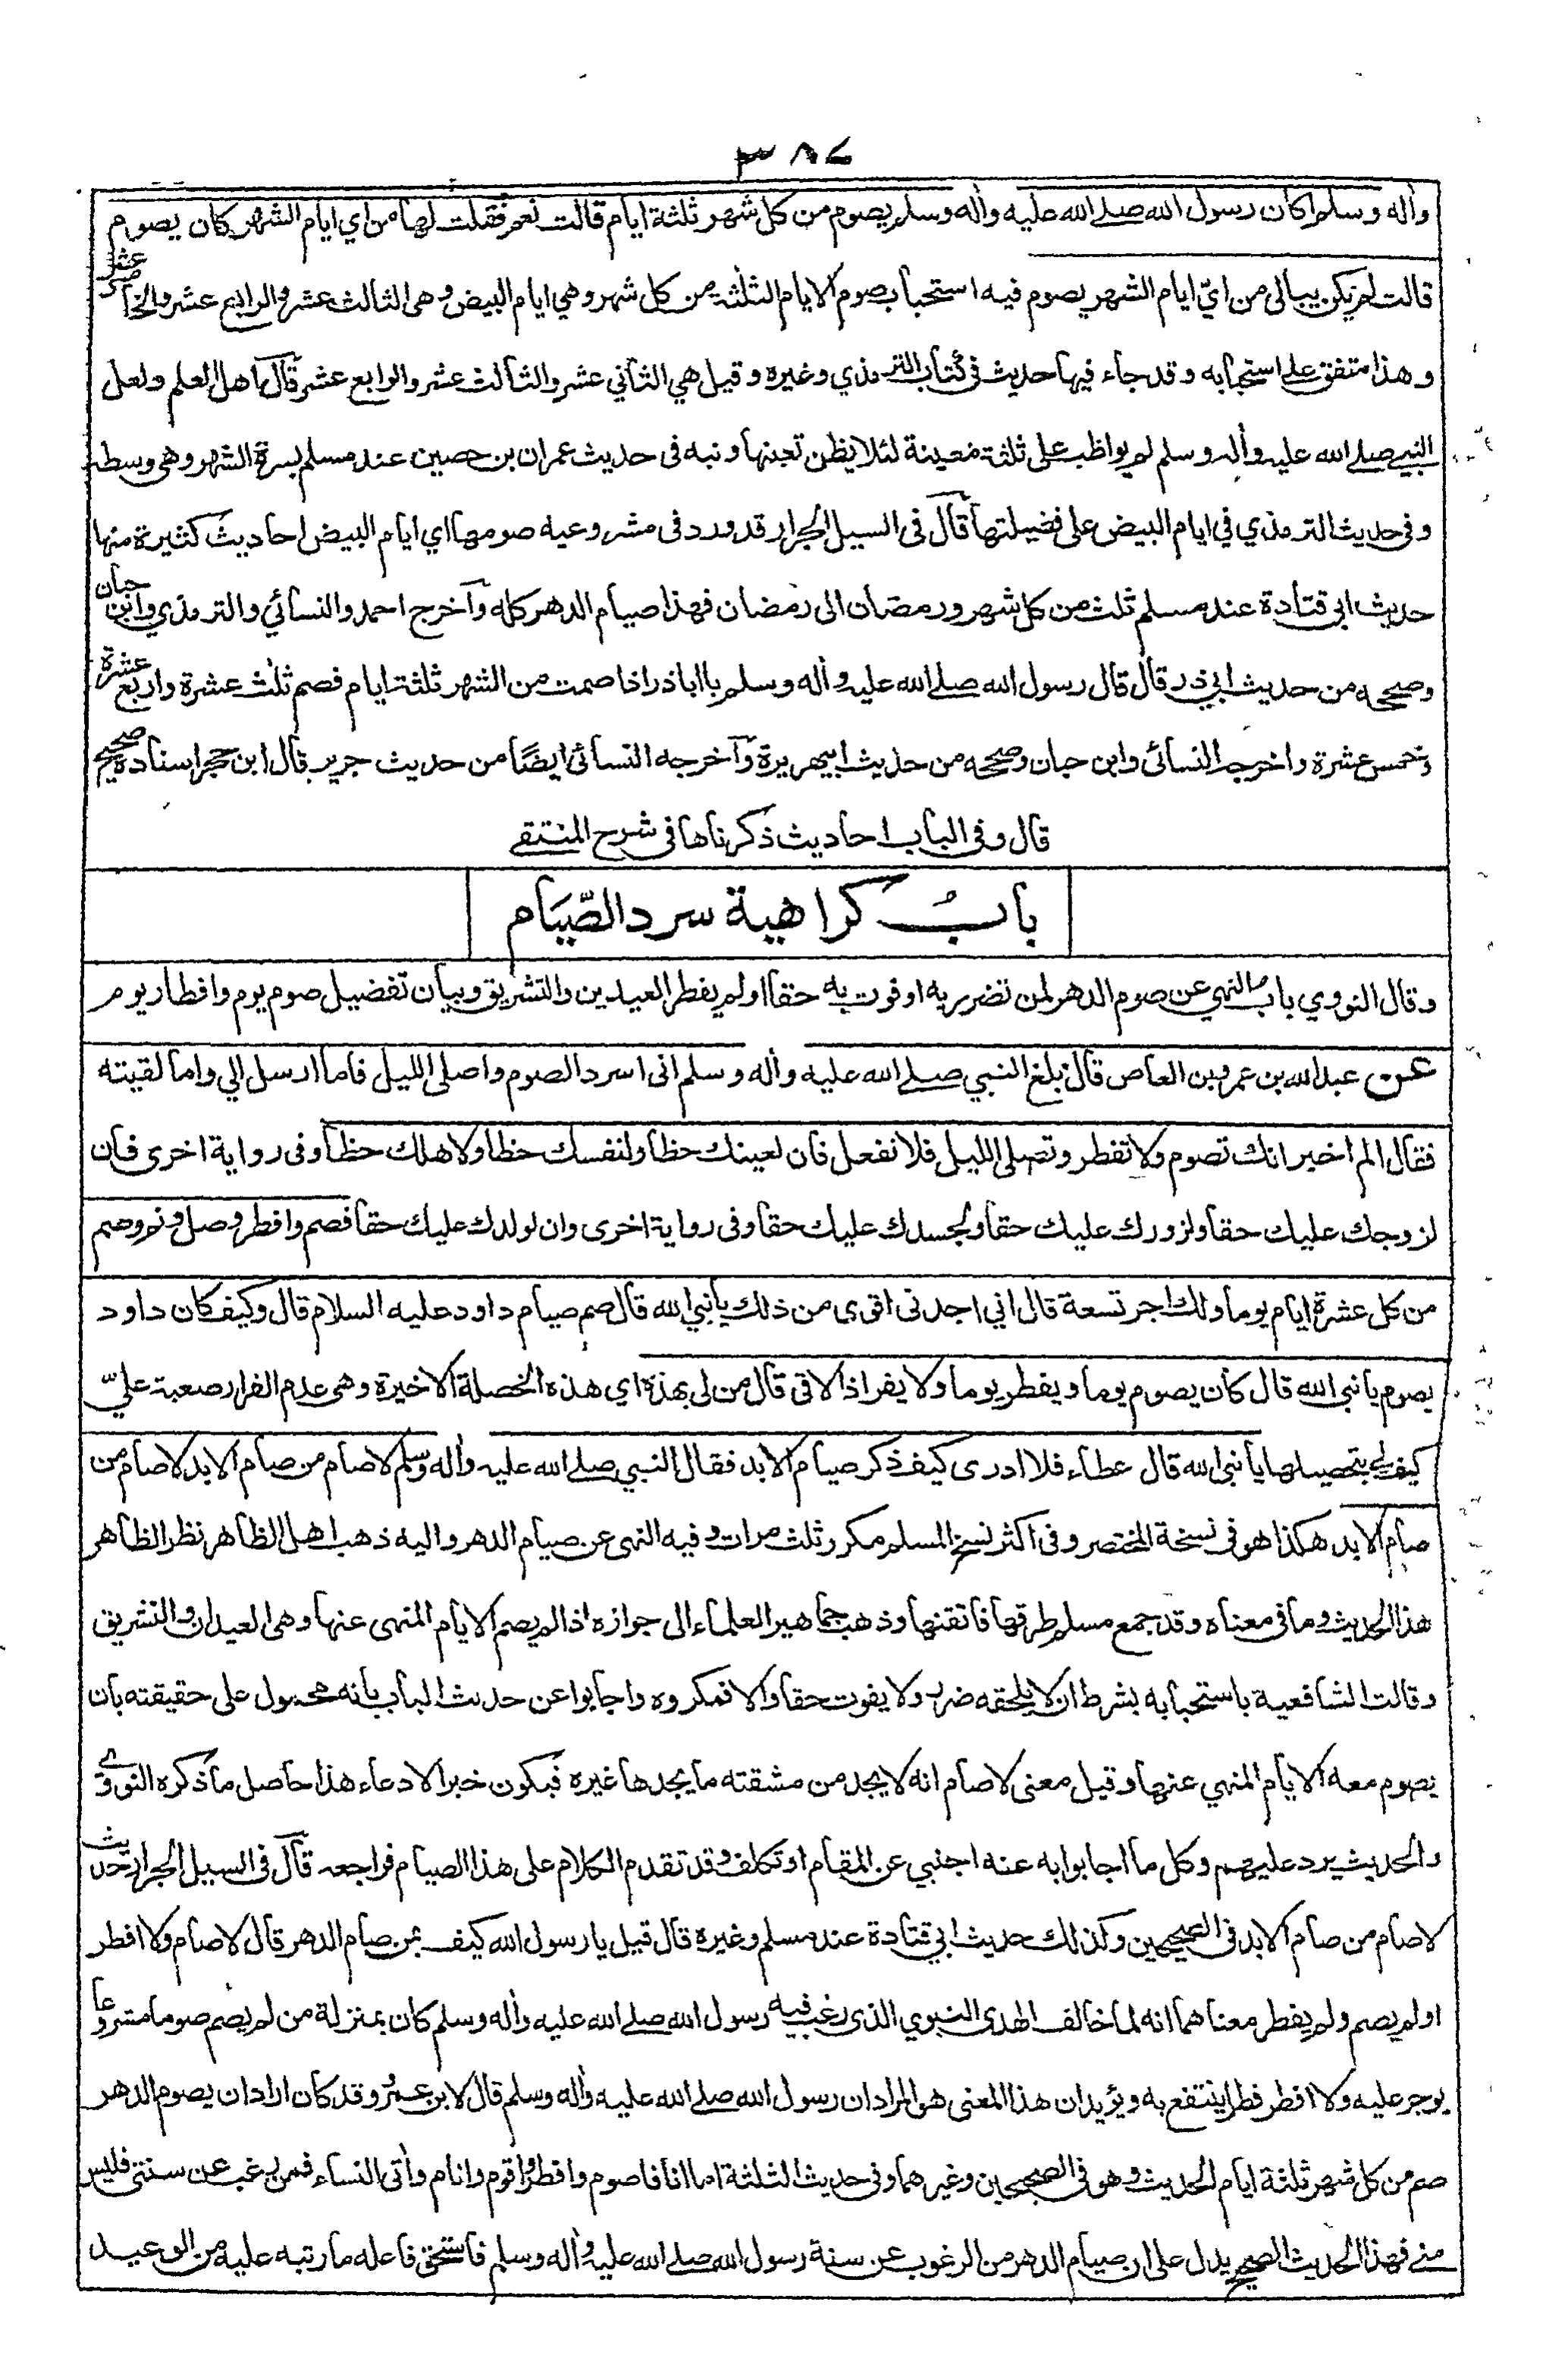 ٣٨٧
وأله وسلم اكان رسول الله صلى الله عليه وأله وسلم يصوم من كل شهر ثلثة ايام قالت نعم فقلت لها من اي ايام الشهر كان يصوم
قالت لم يكن يبالى من ايّ ايام الشهر يصوم فيه استحباب صوم الايام الثلثة من كل شهر وهي ايام البيض وهى الثالث عشر والرابع عشر والخامس عشر
وهذا متفق على استحبابه وقد جاء فيها حديث فى كتاب الترمذي وغيره وقيل هي الثاني عشر والثالث عشر والرابع عشر قال اهل العلم ولعل
النبي صلى الله عليه وأله وسلم لم يواظب على ثلثة معينة لئلا يظن تعينها ونبه فى حديث عمران بن حصين عند مسلم بسرة الشهر وهي وسطه
وفى حديث الترمذي في ايام البيض على فضيلتها قال فى السيل الجرار قد ورد فى مشروعية صومها اي ايام البيض احاديث كثيرة منها
حديث ابى قتادة عند مسلم ثلث من كل شهر ورمضان الى رمضان فهذا صيام الدهر كله وأخرج احمد والنسائي والترمذي وابن حبان
وصححه من حديث ابي ذر قال قال رسول الله صلى الله عليه وأله وسلم يا اباذر اذا صمت من الشهر ثلثة ايام فصم ثلث عشرة واربع عشرة
وخمس عشرة واخرجه النسائى وابن حبان وصححه من حديث ابيهريرة وأخرجه النسائى ايضًا من حديث جرير قال ابن حجر اسناده صحيح
قال وفى الباب احاديث ذكرناها فى شرح المنتقى
بابُ كراهية سرد الصّيَام
وقال النووي باب النهي عن صوم الدهر لمن تضرر به او فوت به حقا او لم يفطر العيدين والتشريق وبيان تفضيل صوم يوم وافطار يوم
عن عبد الله بن عمرو بن العاص قال بلغ النبي صلى الله عليه وأله وسلم انى اسرد الصوم واصلى الليل فاما ارسل الي واما لقيته
فقال الم اخبر انك تصوم ولا تفطر وتصلى الليل فلا تفعل فان لعينك حظا ولنفسك حظا ولاهلك حظا وفى رواية اخرى فان
لزوجك عليك حقا ولزورك عليك حقا ولجسدك عليك حقا وفى رواية اخرى وان لولدك عليك حقا فصم وافطر وصل ونم وصم
من كل عشرة ايام يوما ولك اجر تسعة قال اني اجدنى اقوى من ذلك يا نبي الله قال صم صيام داود عليه السلام قال وكيف كان داود
يصوم يا نبى الله قال كان يصوم يوما ويفطر يوما ولا يفر اذا لاقى قال من لى بهذه اي هذه الخصلة الاخيرة وهى عدم الفرار صعبة عليّ
كيف لي بتحصيلها يا نبى الله قال عطاء فلا ادرى كيف ذكر صيام الابد فقال النبي صلى الله عليه وأله وسلم لا صام من صام الابد لا صام من
صام الابد هكذا هو فى نسخة المختصر وفى اكثر نسخ المسلم مكرر ثلث مرات وفيه النهى عن صيام الدهر واليه ذهب اهل الظاهر نظر الظاهر
هذا الحديث وما فى معناه وقد جمع مسلم طرقها فاتقنها وذهب جماهير العلماء الى جوازه اذا لم يصم الايام المنهى عنها وهى العيدان والتشريق
وقالت الشافعية باستحبابه بشرط ان لا يلحقه ضرر ولا يفوت حقا والا فمكروه واجابوا عن حديث الباب بانه محمول على حقيقته بان
يصوم معه الايام المنهي عنها وقيل معنى لا صام انه لا يجد من مشقته ما يجدها غيره فيكون خبرا لا دعاء هذا حاصل ما ذكره النووي
والحديث يرد عليهم وكل ما اجابوا به عنه اجنبي عن المقام او تكلف وقد تقدم الكلام على هذا الصيام فراجعه قال فى السيل الجرار حديث
لا صام من صام الابد فى الصحيحين وكذلك حديث ابي قتادة عند مسلم وغيره قال قيل يا رسول الله كيف بمن صام الدهر قال لا صام ولا افطر
او لم يصم ولم يفطر معناهما انه لما خالف الهدى النبوي الذى رغب فيه رسول الله صلى الله عليه وأله وسلم كان بمنزلة من لم يصم صوما مشروعا
يوجر عليه ولا افطر فطرا ينتفع به ويؤيد ان هذا المعنى هو المراد ان رسول الله صلى الله عليه وأله وسلم قال لابن عمر وقد كان اراد ان يصوم الدهر
صم من كل شهر ثلثة ايام الحديث وهو فى الصحيحين وغيرهما وفى حديث الثلثة اما انا فاصوم وافطر واقوم وانام وأتى النساء فمن رغب عن سنتى فليس
مني فهذا الحديث الصحيح يدل على ان صيام الدهر من الرغوب عن سنة رسول الله صلى الله عليه وأله وسلم فاستحق فاعله ما رتبه عليه من الوعيد